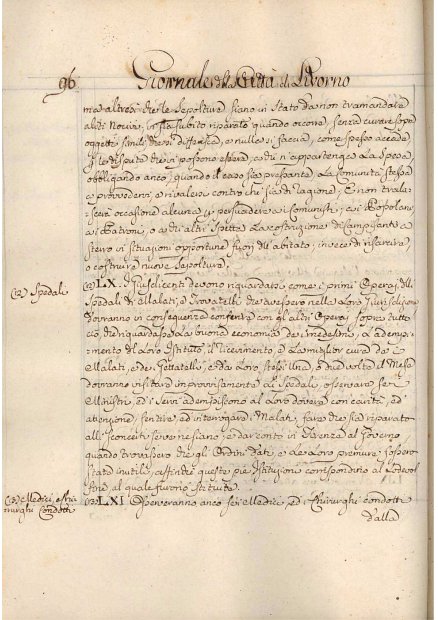 96
Giornale della Città di Livorno
ma altresì che le Sepolture siano in stato da non tramandare
aliti Nocivi, in sia subito riparato quando occorre, senza curare sopra
oggetti simili che vi difficoltà, o nulla si faccia, come spesso accade
dispute che vi possono essere, a chi n'appartenga La Spesa,
obbligando anco, quando il caso sia pressante La Comunità stessa
a provvedervi, e rivalersi contro chi sia di ragione, E non trala-
scerà occasione alcuna di persuadere ai Comunisti, ai Popolani
ai Patroni, o a chi altri spetta La costruzione di Campisanti a
sterro in situazioni opportune fuori dell'abitato, invece di risarcire,
o costruire nuove Sepolture.
(12) Spedali
(12) LX. I Giusdicenti devono riguardarsi come i primi Operaj delli
Spedali di Malati, e Trovatelli che avessero nella Loro Giurisdizione
Dovranno in conseguenza conferire con gli altri Operaj sopra tutto
ciò, che riguarda La buona economia dei medesimi, L'adempi-
mento del Loro Istituto, il ricevimento, e La miglior cura dei
Malati, e dei Gettatelli, e da Loro stessi una, o due volte il Mese
dovranno visitare improvvisamente gli Spedali, osservare se i
Ministri, ed i servi adempiscono al Loro dovere con carità, ed
attenzione, sentire, ed interrogare i Malati, fare che sia riparato
alli sconcerti se ve ne siano, e dar conto in Firenze al Governo
quando trovassero che gli Ordini dati, e Le Loro premure fossero
state inutili, affinché queste pie Istituzioni corrispondino al Lodevol
fine al quale furono istituite
(13) Medici, e Chi-
rurghi Condotti
(13) LXI Osserveranno anco se i Medici, ed i Chirurghi condotti
dalla